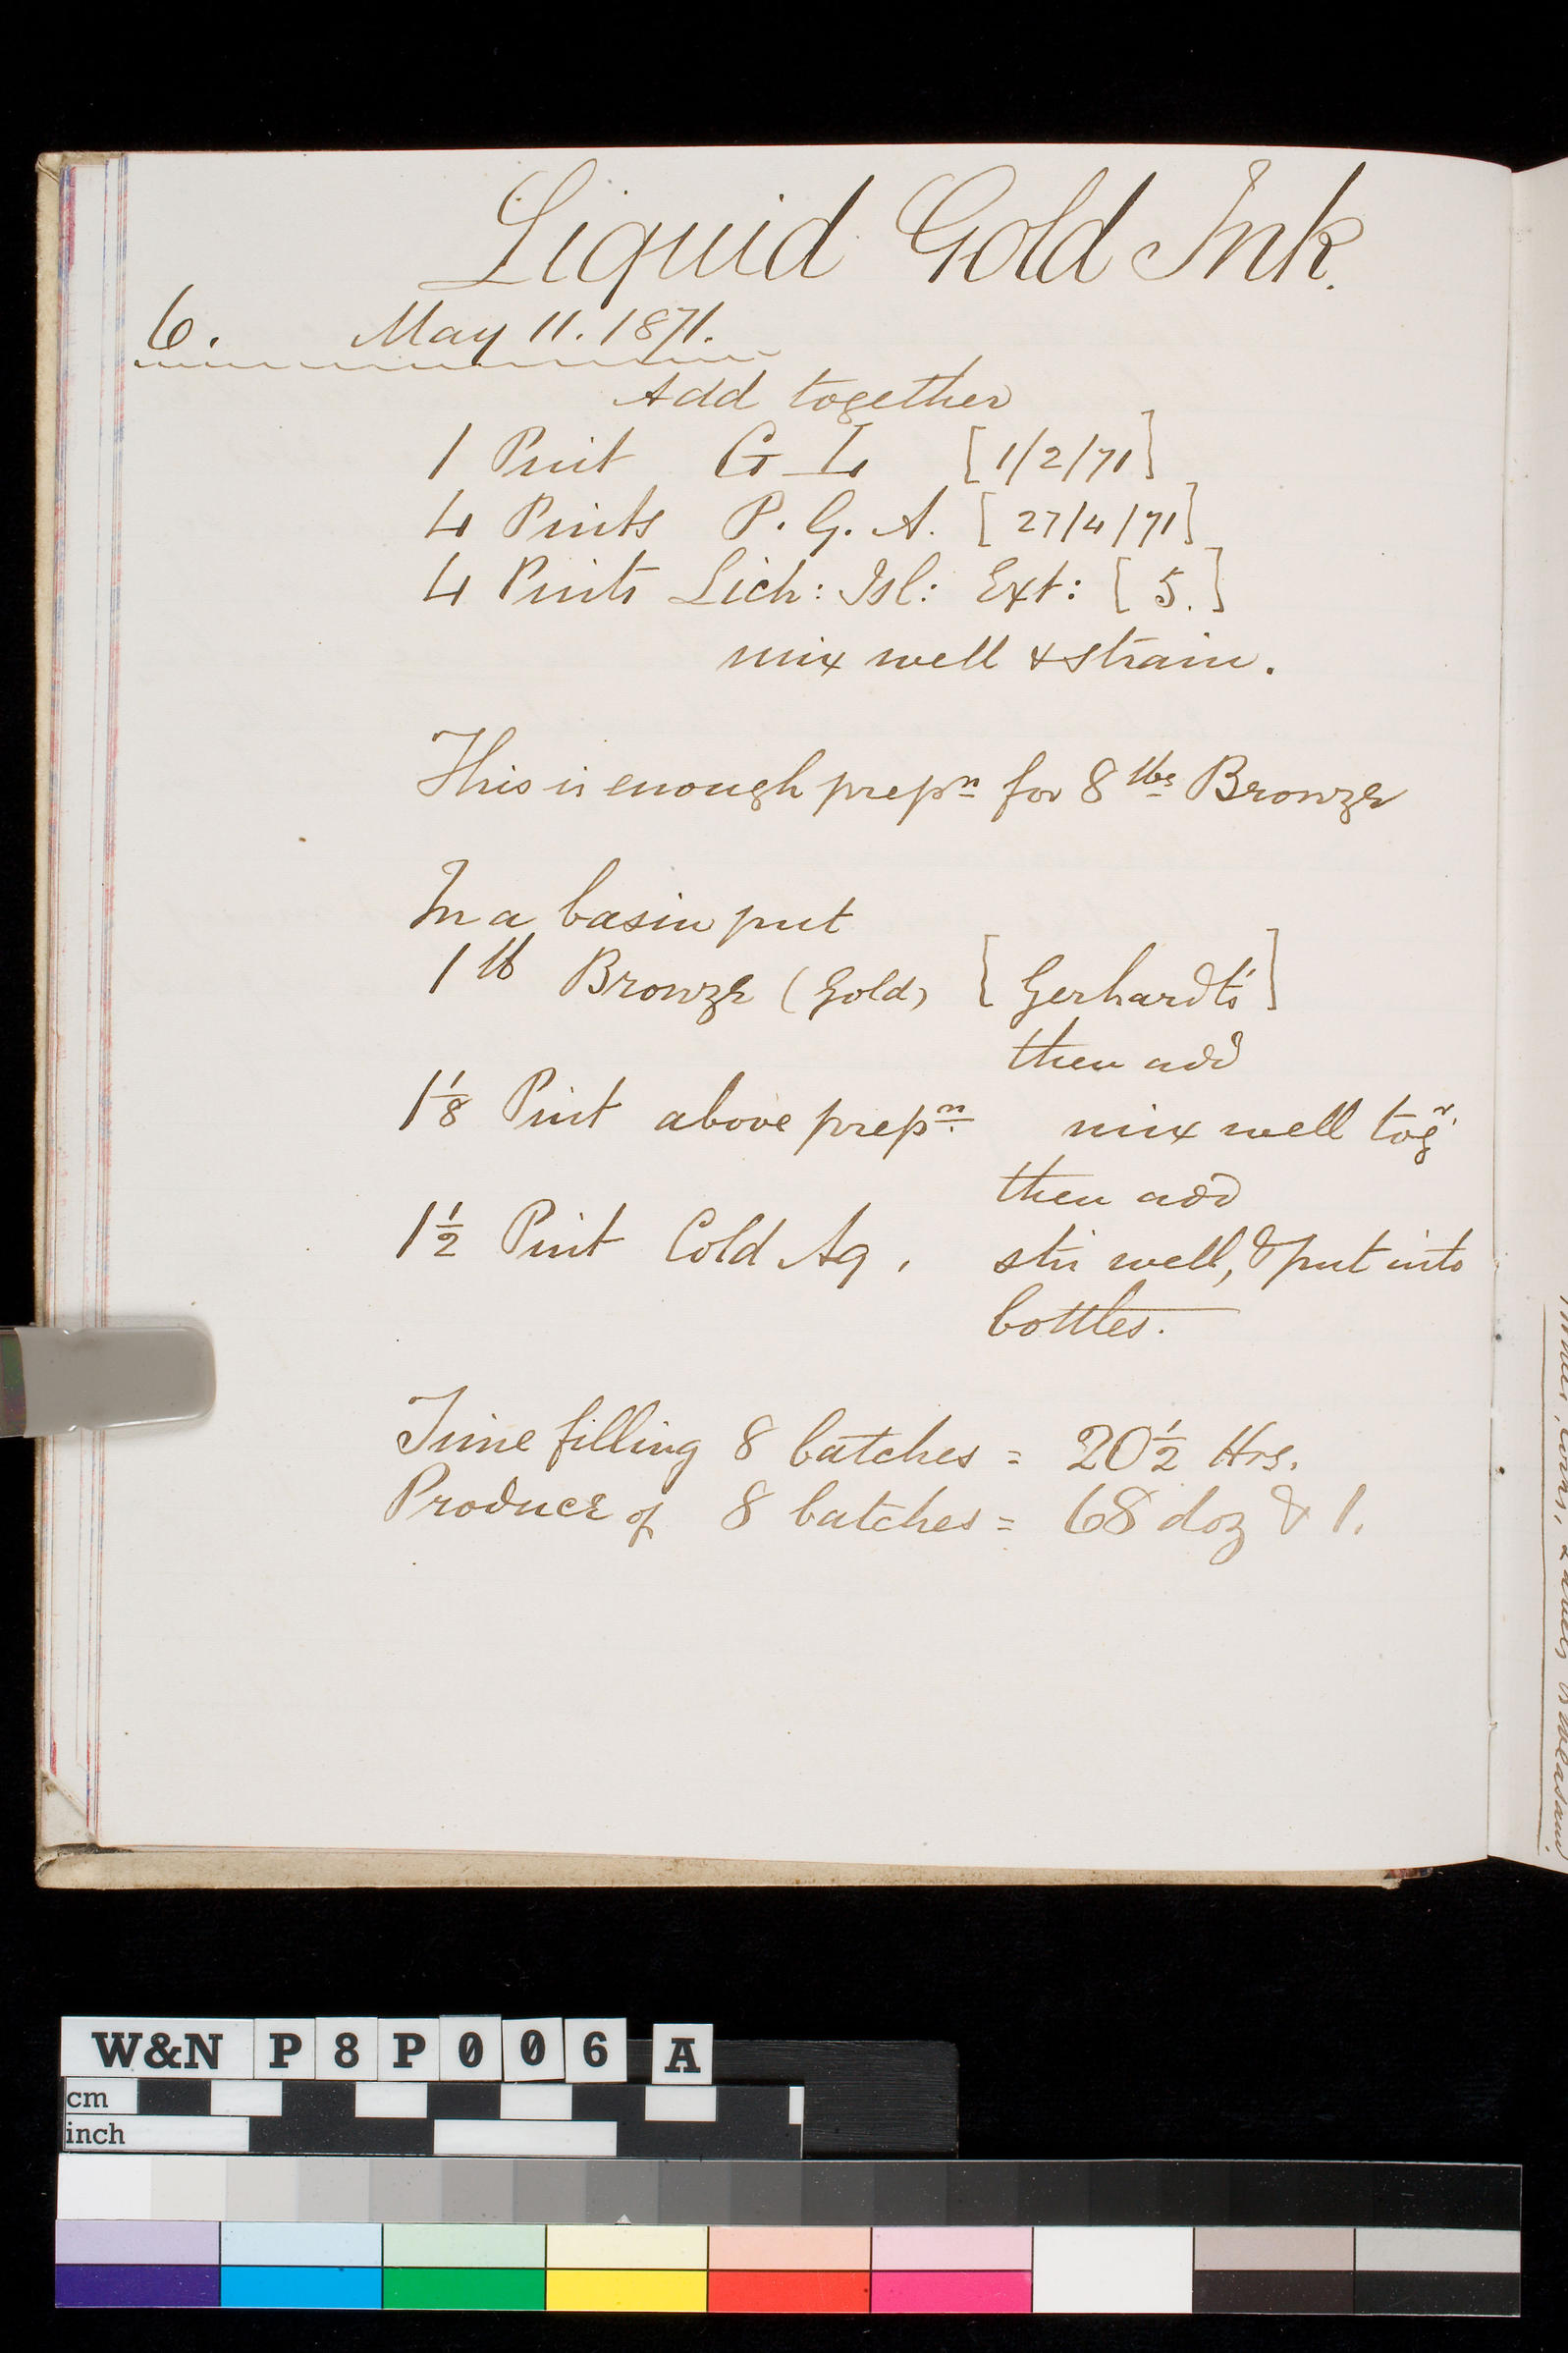 Liquid Gold Ink.
6. May 11. 1871.
Add together
1 Pint G L [1/2/71]
4 Pints P. G. A. [27/4/71]
4 Pints Lich: Isl: Ext: [5.]
mix well & strain.
This is enough prepn for 8 lbs Bronze
In a basin put
1 lb Bronze (Gold) [Gerhardt's]
then add
1 1/8 Pint above prepn. mix well togr.
then add
1 1/2 Pint Cold Aq, stir well, & put into
bottles.
Time filling 8 batches = 20 1/2 Hrs.
Produce of 8 batches = 68 doz & 1.
W&N P8P006 A
cm
inch